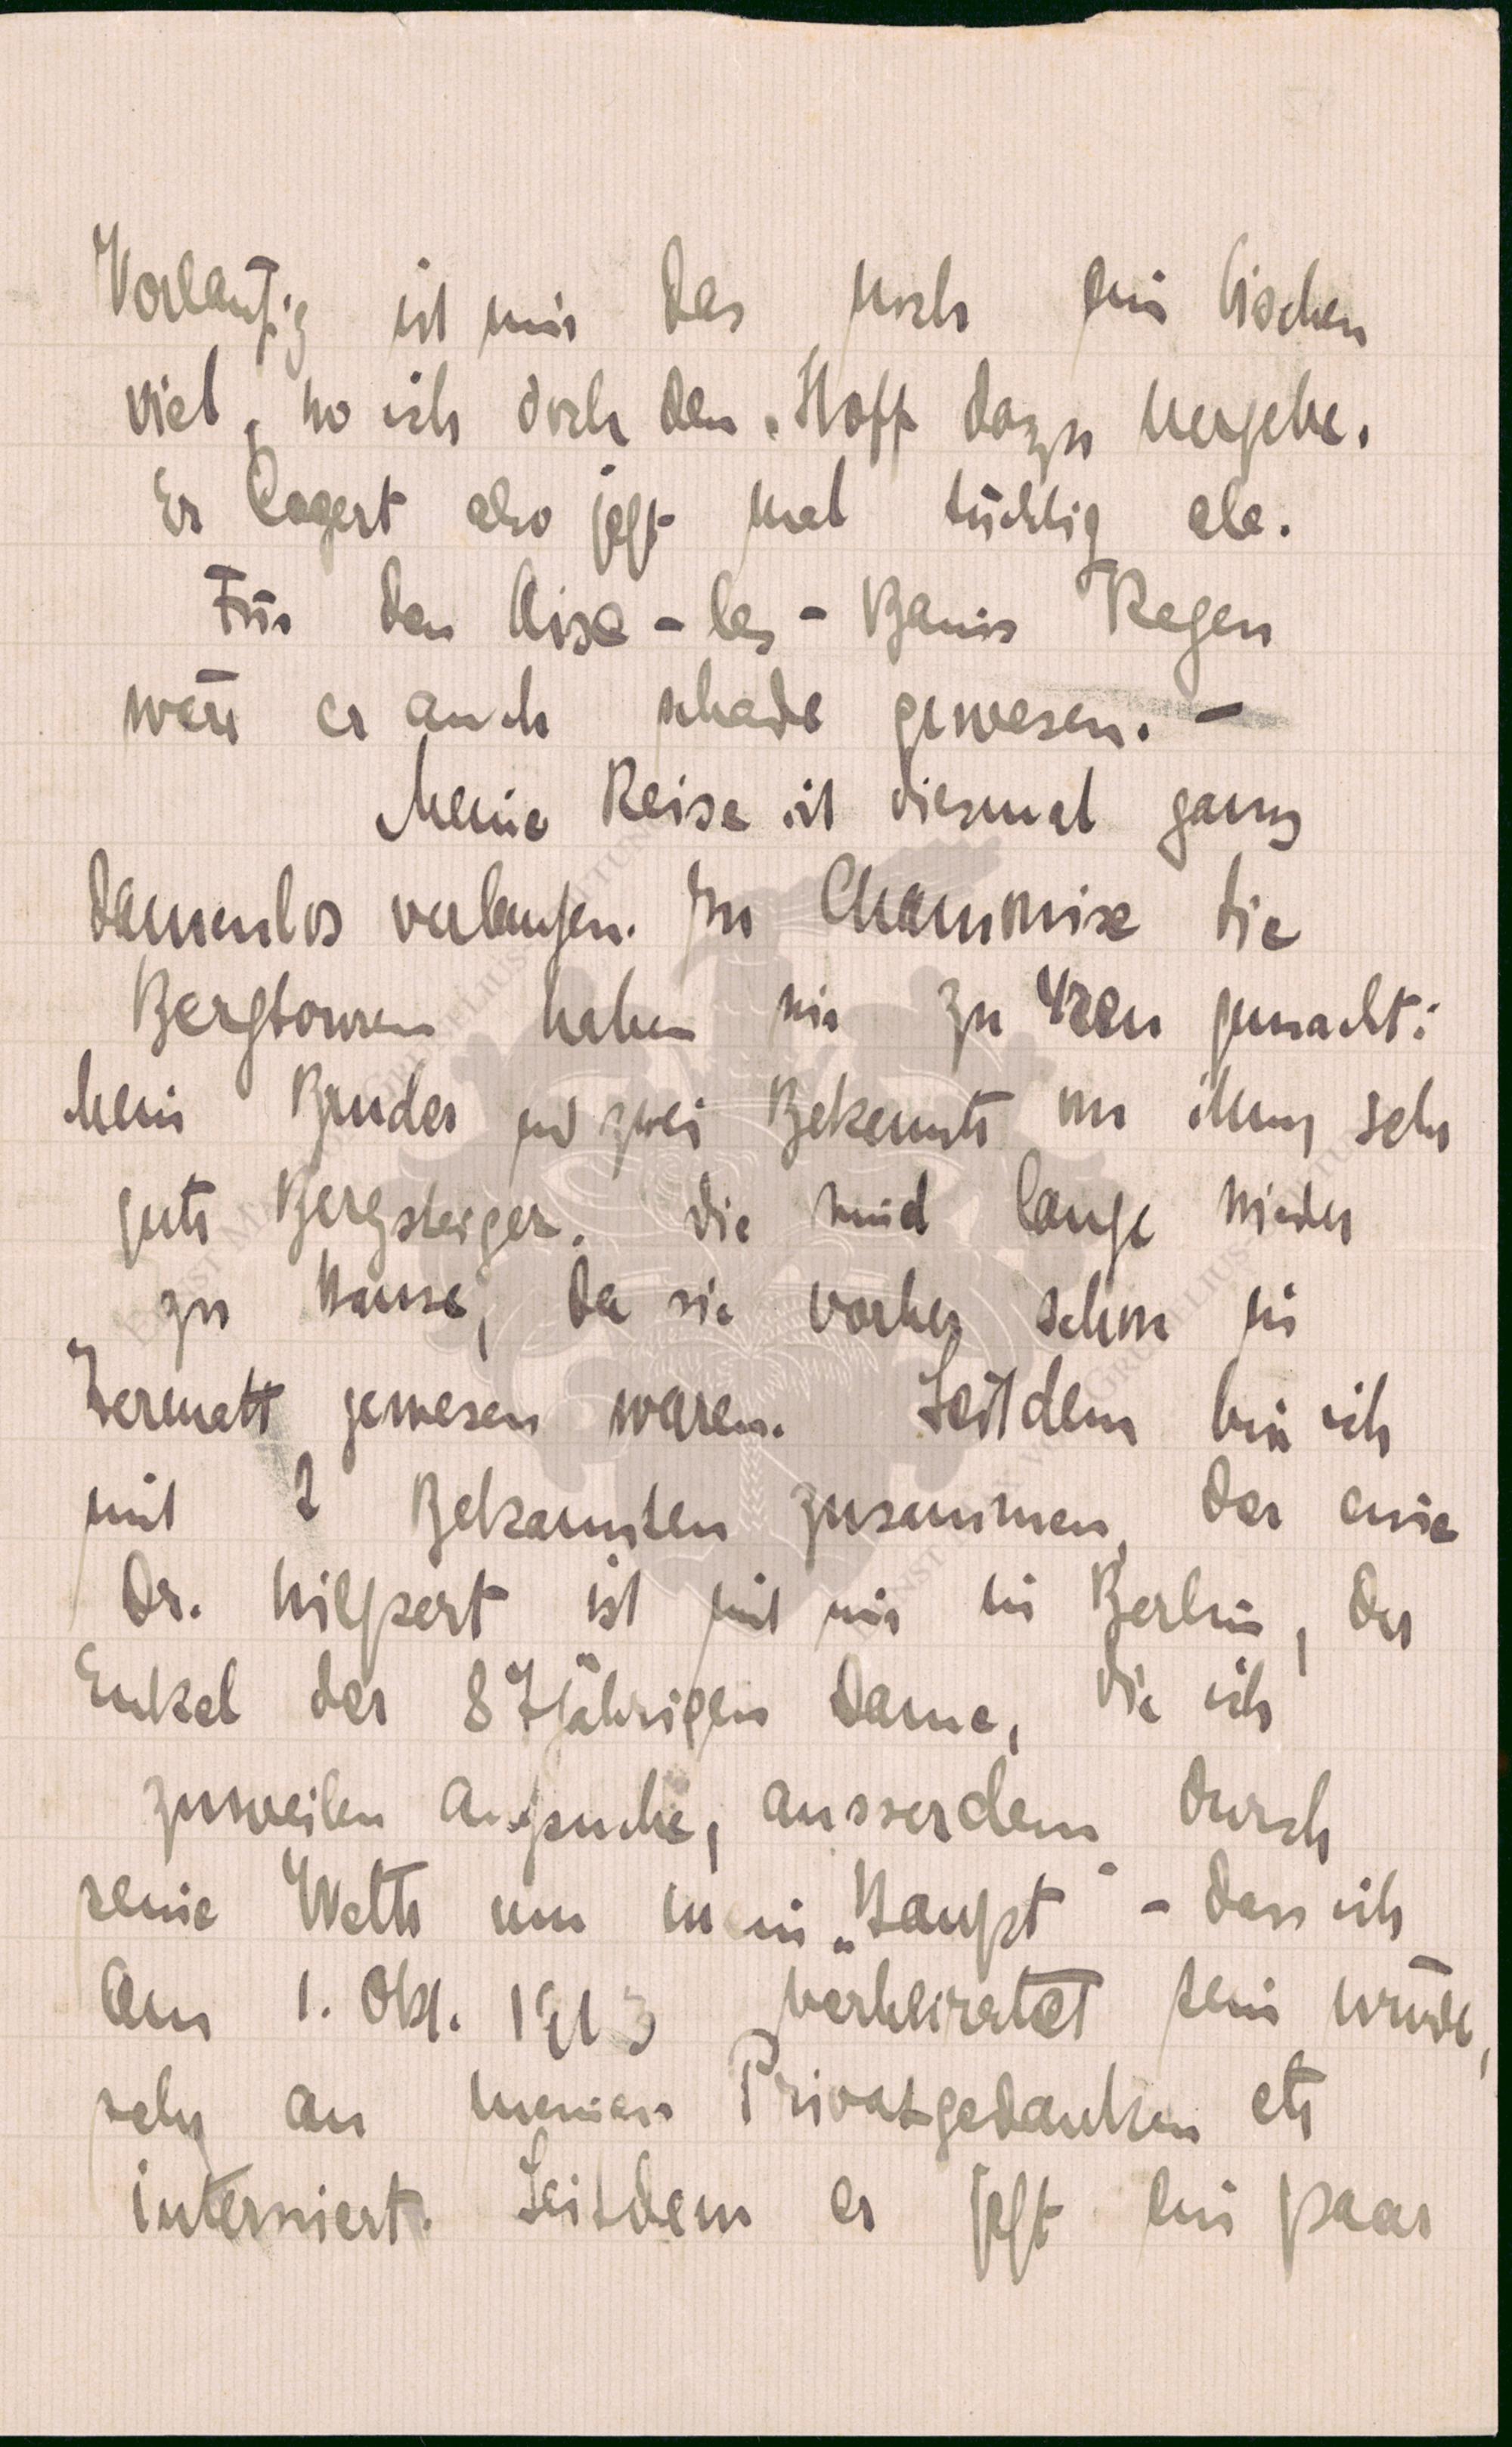 Vorläufig ist mir das noch ein bischen
viel, wo ich doch den Stoff dazu hergebe.
Er lagert also jetzt mal tüchtig ab.
Für den Aixe-les-Bains Regen
wäre er auch schade gewesen. –
Meine Reise ist diesmal ganz
damenlos verlaufen. In Chammonix die
Bergtouren haben wir zu 4ren gemacht:
Mein Bruder und zwei Bekannte von ihm, sehr
gute Bergsteiger. Die sind lange wieder
zu Hause, da sie vorher schon in
Zermatt gewesen waren. Seitdem bin ich
mit 2 Bekannten zusammen, der eine
Dr. Hilpert ist mit mir in Berlin, der
Enkel der 87jährigen Dame, die ich
zuweilen aufsuche, ausserdem durch
seine Wette um mein „Haupt“ – dass ich
am 1. Okt. 1913 verheiratet sein würde,
sehr an meinen Privatgedanken etc
interniert. Seitdem er jetzt ein paar